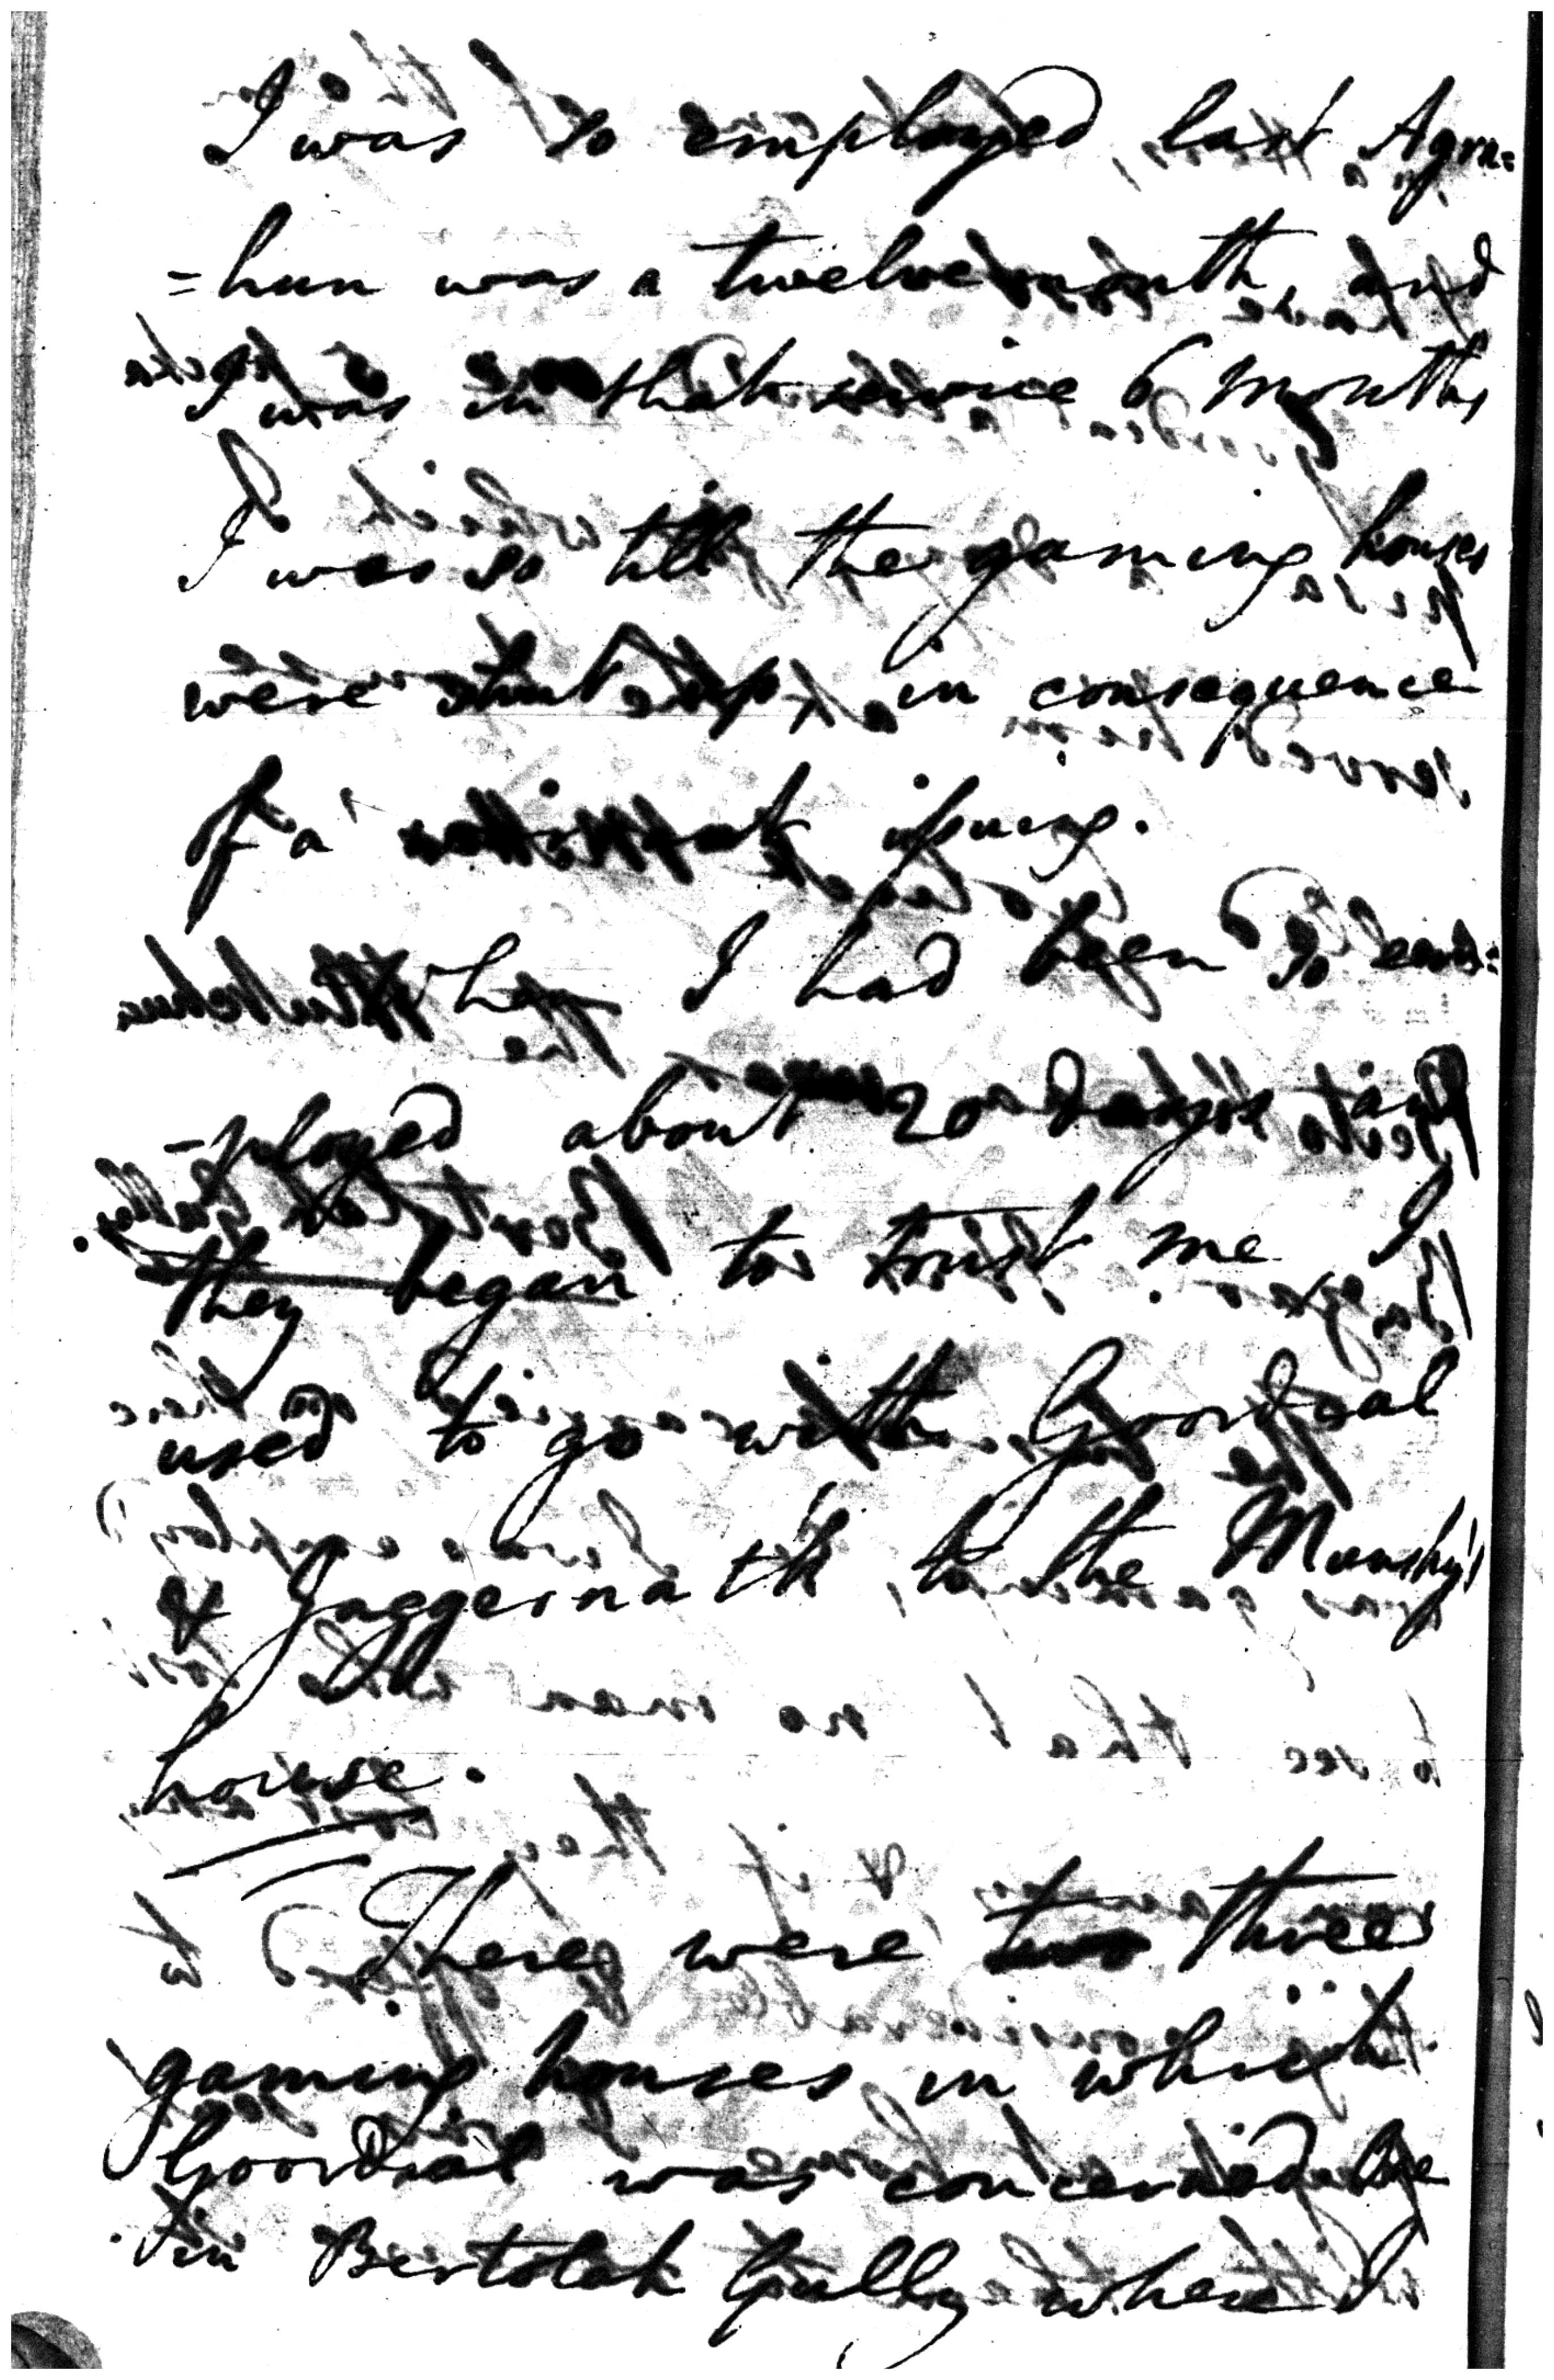 I was so employed, last Agra=
=hun was a twelvemonth, and
I was in that service 6 months
I was so till the gaming houses
were shut up, in consequence
of a issuing.
when I had been so em=
-ployed about 20 days
they began to trust me I
used to go with Goordial
& Juggernath, to the Munshy's
house.
There were two three
gaming houses in which
Goordial was concerned One
in Bertolah Gully where I